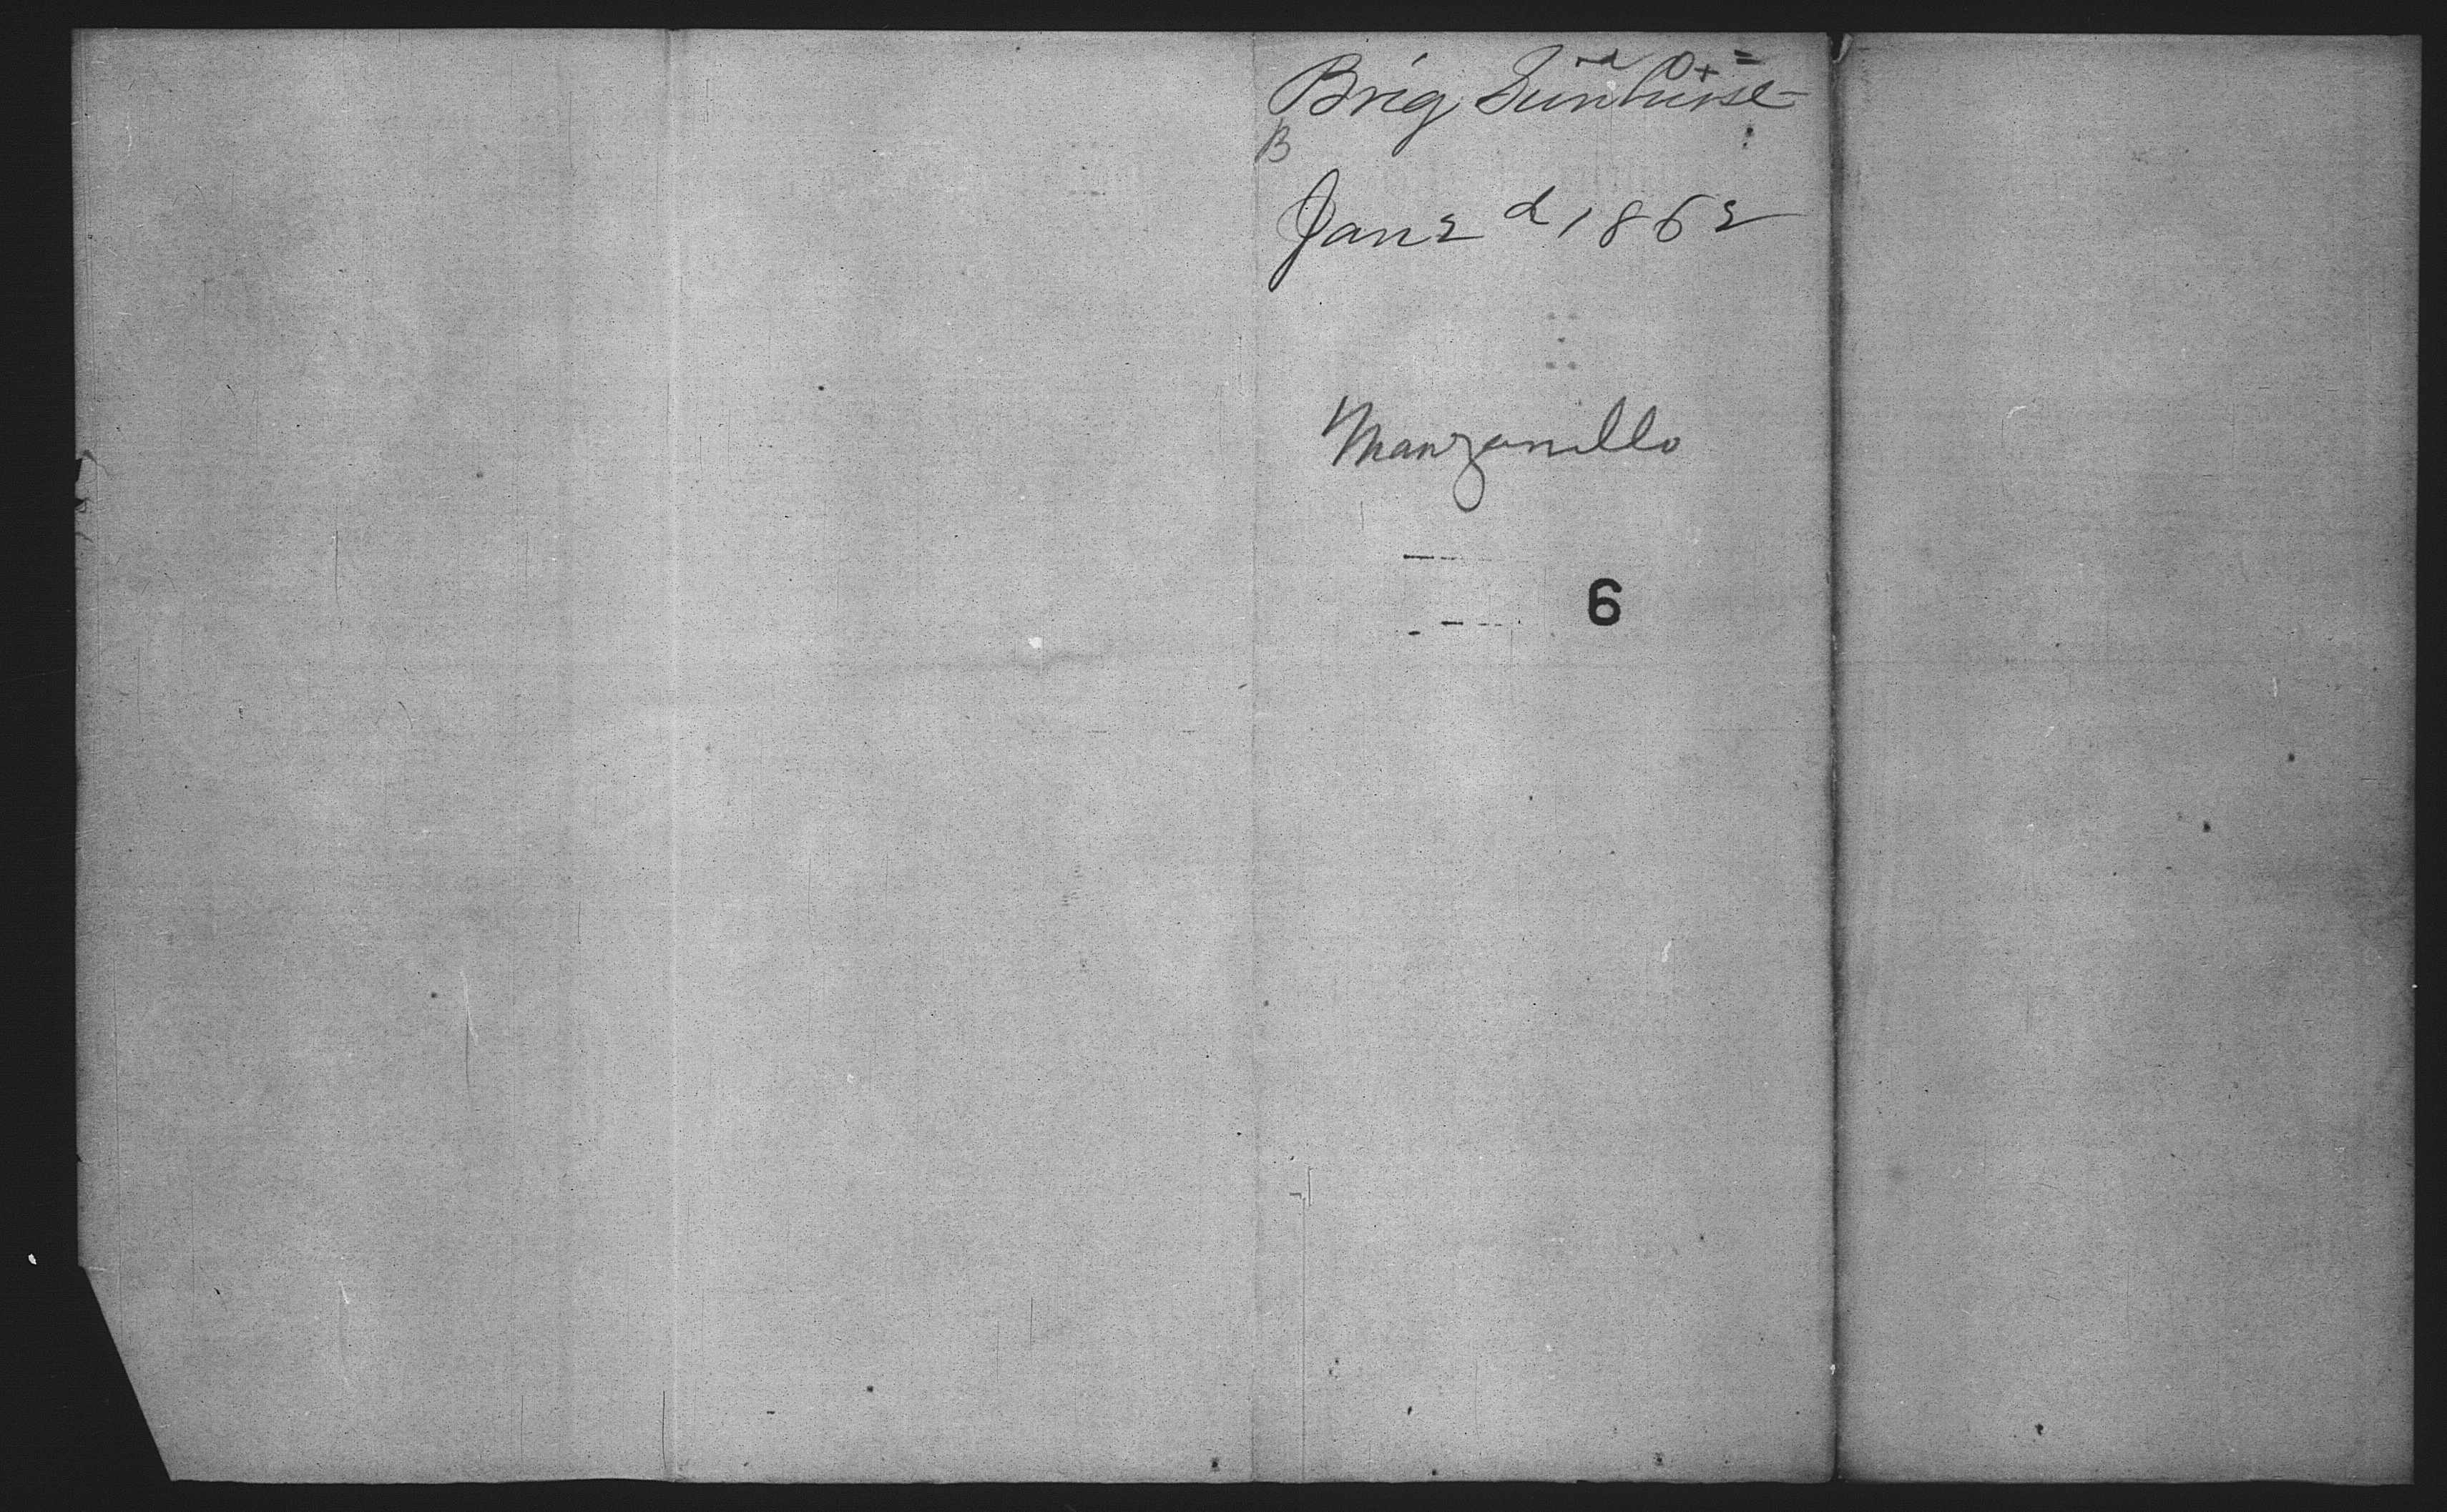 Brig Sunhurst
B
Jan 2d 1862
Manzanillo
6